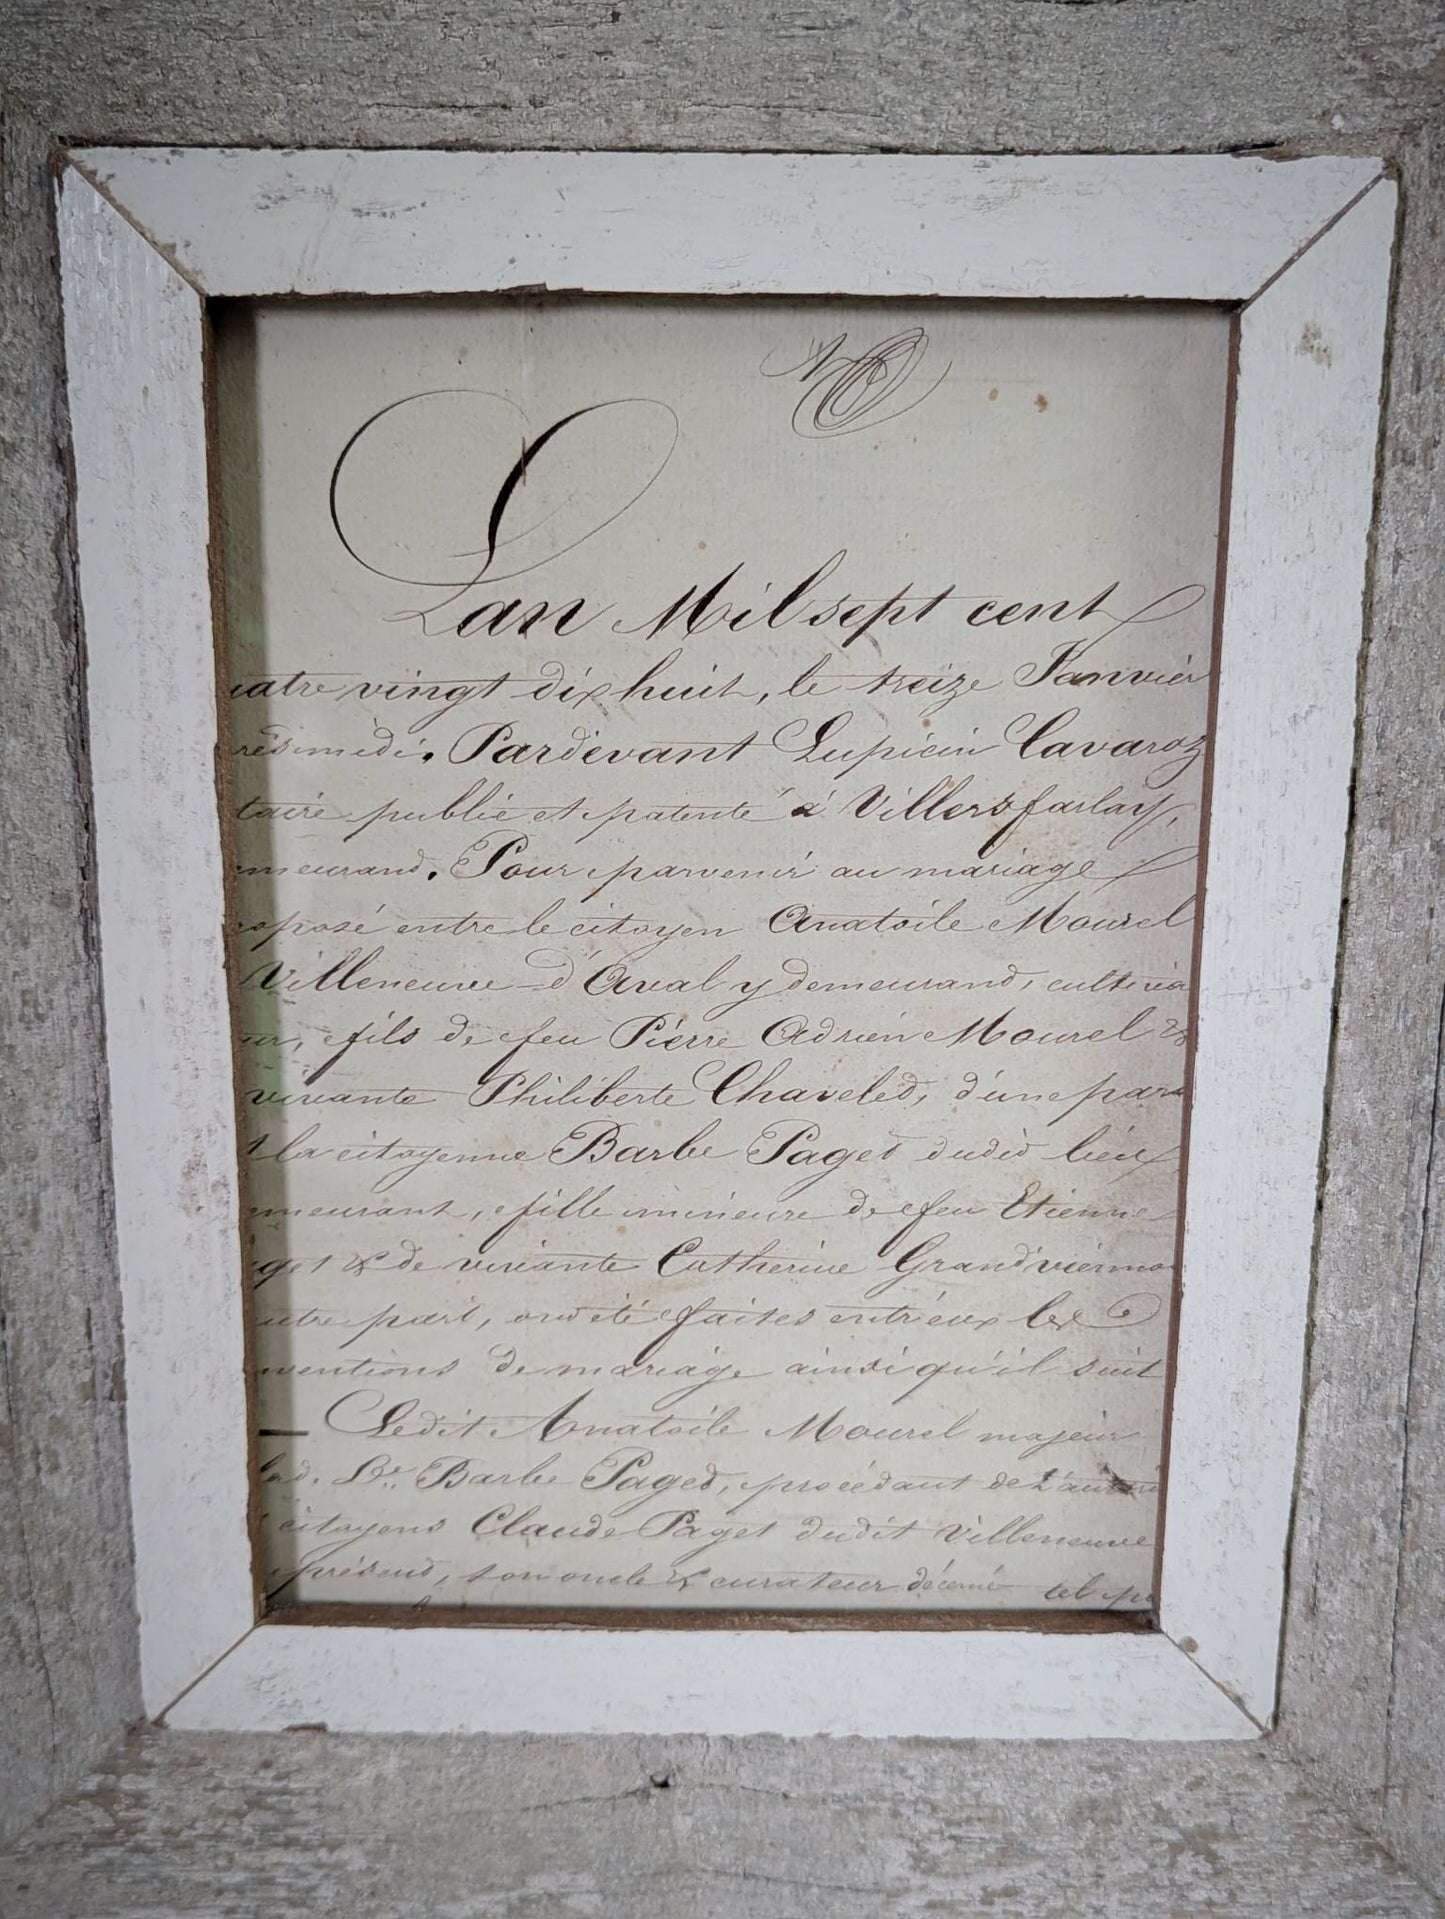 Lan Mil sept cent
uatre vingt dix huit, le treize Janvier
rèsmidi. Pardevant Lupicin Cavaroz
taire public et patenté à Villersfarlay,
meurand. Pour parvenir au mariage
oposé entre le citoyen Anatoile Mourel
Villeneuve d'Aval y demeurand, cultiva
ur, fils de feu Pierre Adrien Mourel &
vivante Philiberte Chaveled, d'une part
t la citoyenne Barbe Paged dudid lieu
meurant, fille mineure de feu Etienne
get & de vivante Catherine Grandvienno
utre part, ond été faites entr'eux les
nventions de mariage ainsi qu'il suit
Ledit Anatoile Mourel majeur
lad. Barbe Paged, procédant de l'autori
citoyens Claude Paget dudit Villeneuve
présend, son oncle & curateur décerné tel